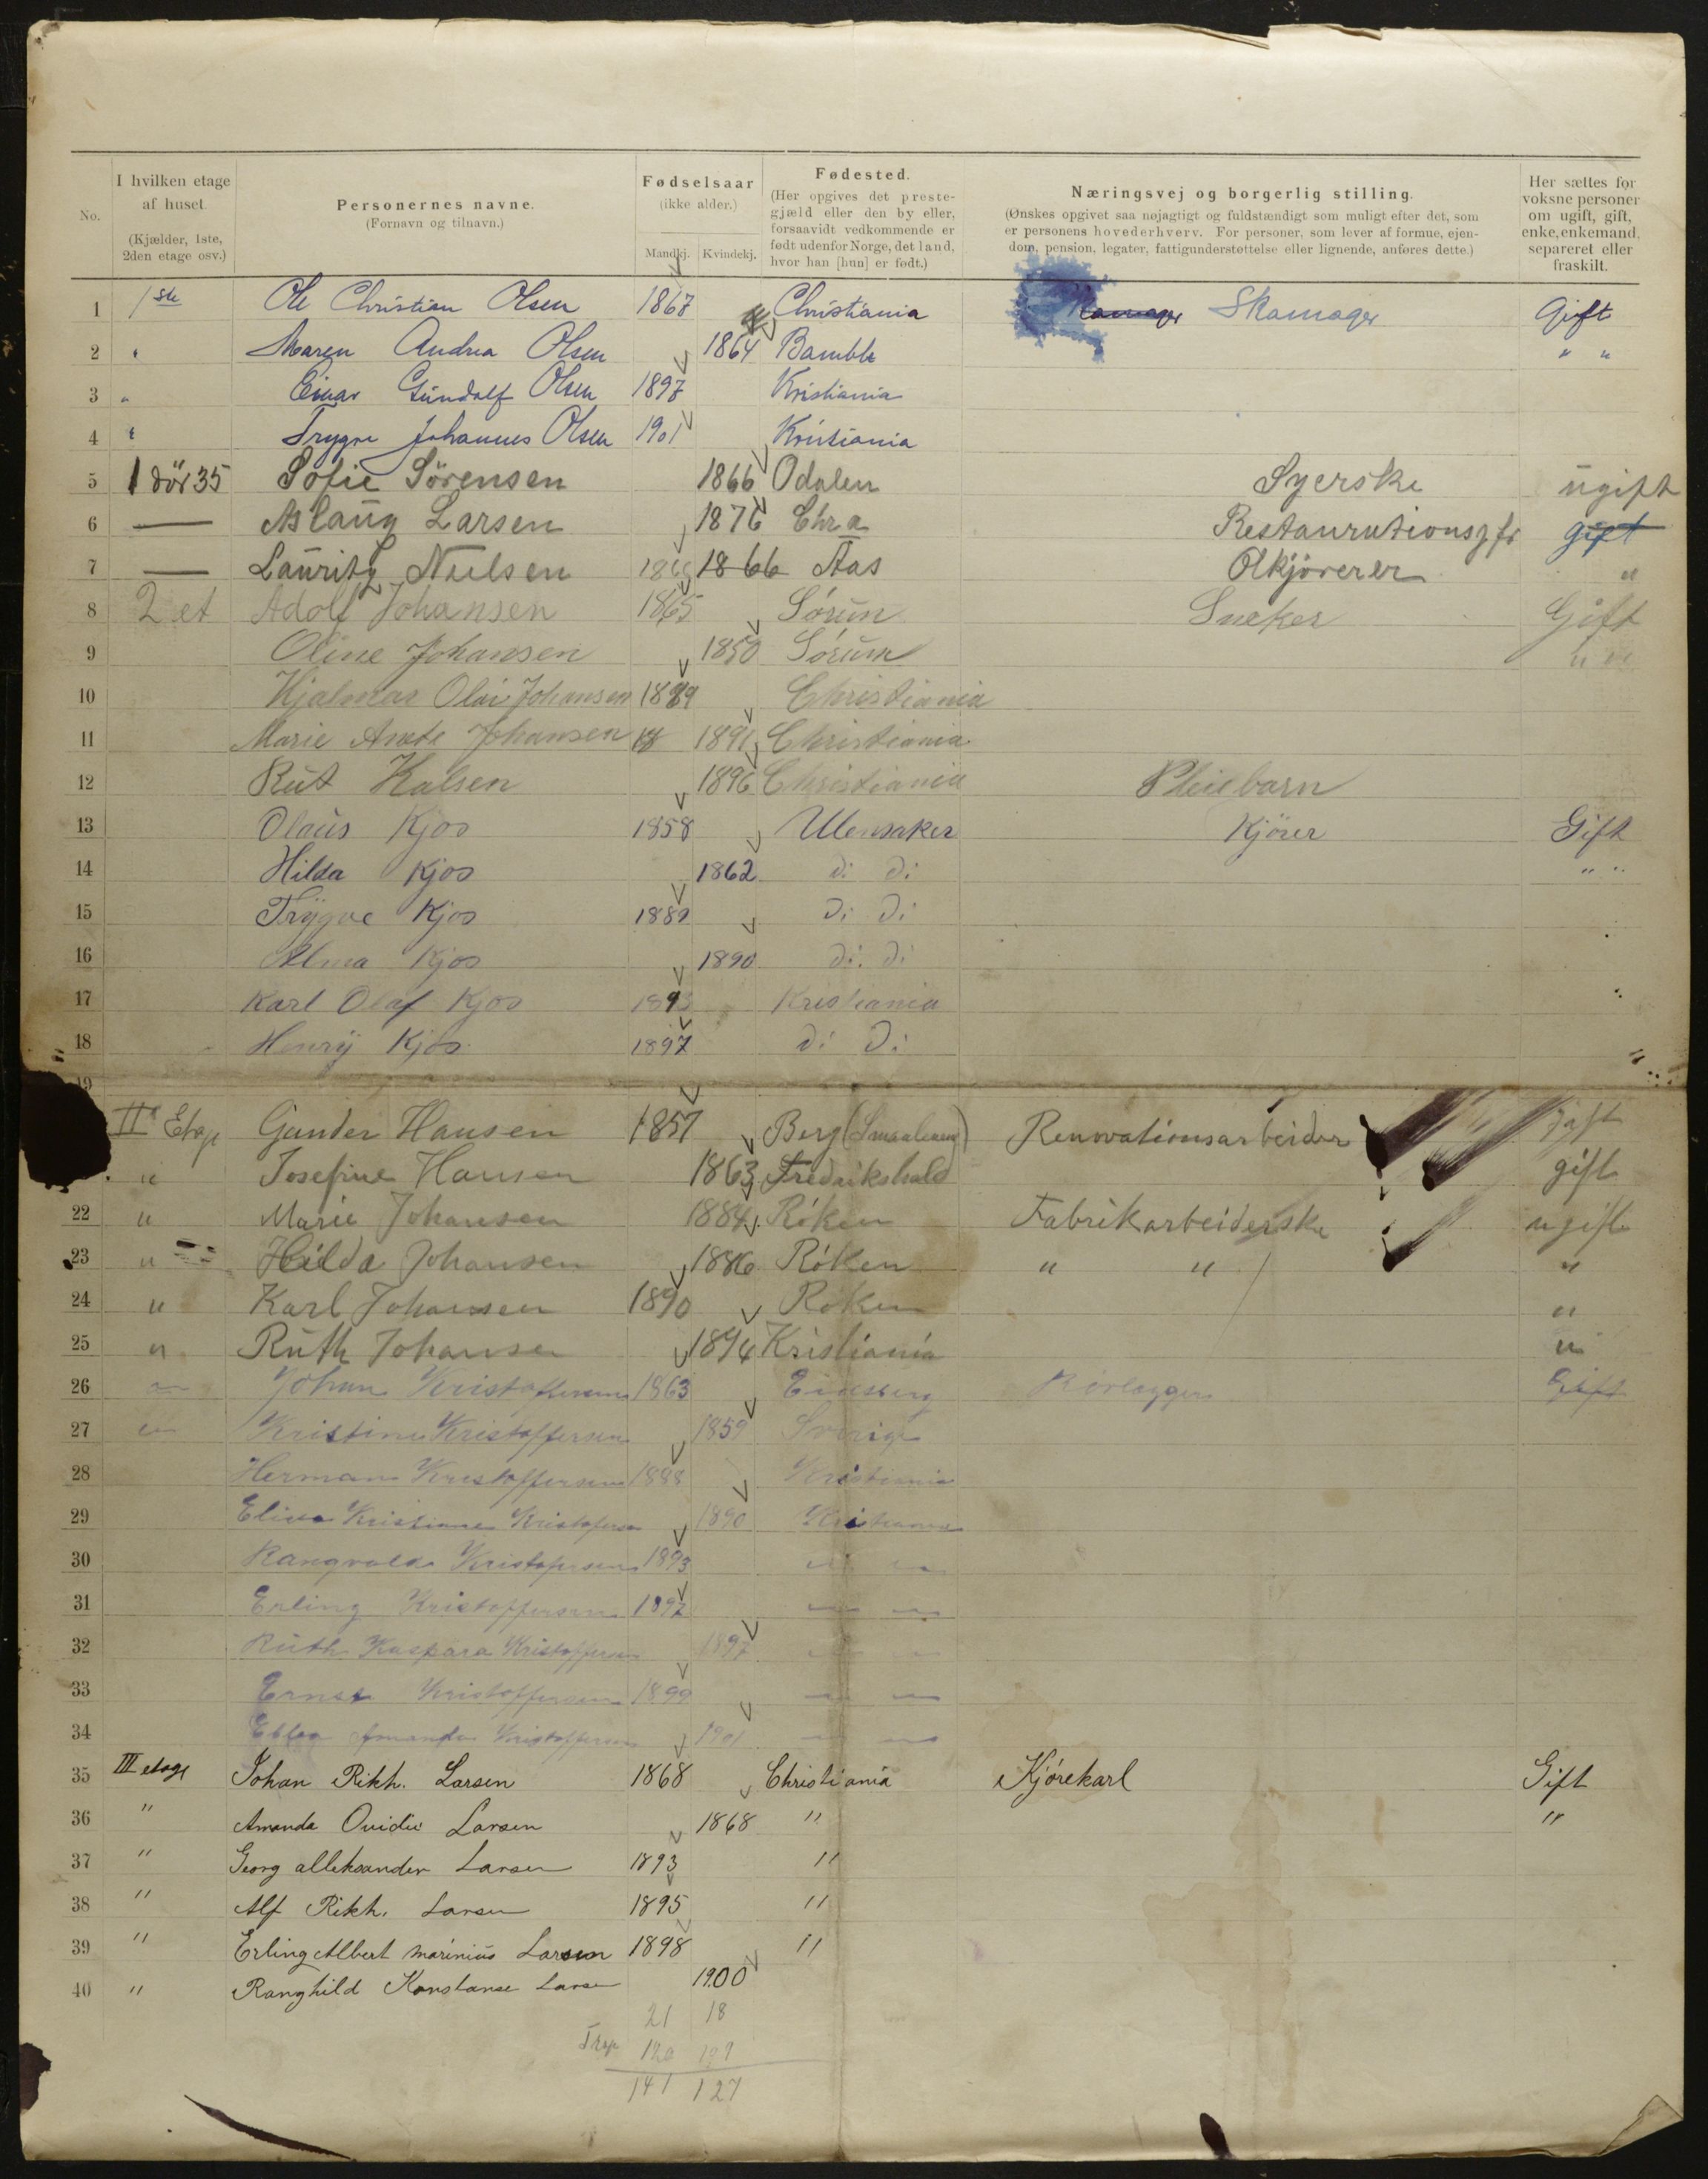 No. I hvilken etage af huset. (Kjælder, 1ste, 2den etage osv.) Personernes navne. (Fornavn og tilnavn.) Fødselsaar (ikke alder.) Mandkj. Kvindekj. Fødested. (Her opgives det prestegjæld eller den by eller, forsaavidt vedkommende er født udenfor Norge, det land, hvor han [hun] er født.) Næringsvej og borgerlig stilling. (Ønskes opgivet saa nøjagtigt og fuldstændigt som muligt efter det, som er personens hovederhverv. For personer, som lever af formue, ejendom, pension, legater, fattigunderstøttelse eller lignende, anføres dette.) Her sættes for voksne personer om ugift, gift, enke, enkemand, separeret eller fraskilt.
1 1ste Ole Christian Olsen 1867 Christiania Skomager Gift
2 " Maren Andrea Olsen 1864 Bamble " "
3 " Einar Gundolf Olsen 1897 Kristiania
4 " Trygve Johannes Olsen 1901 Kristiania
5 1 dör 35 Sofie Sörensen 1866 Odalen Syerske ugift
6 — Aslaug Larsen 1876 Chra Restaurutionsgfr gift
7 — Lauritz Nielsen 1866 1866 Aas Ølkjörerer "
8 2 et Adolf Johansen 1865 Sörum Sneker Gift
9 Oline Johansen 1850 Sörum " "
10 Hjalmar Olai Johansen 1889 Christiania
11 Marie Anete Johansen 18 1891 Christiania
12 Rut Kalsen 1896 Christiania Pleiebarn
13 Olaus Kjos 1858 Ulensaker Kjörer Gift
14 Hilda Kjos 1862 Di Di " "
15 Trygve Kjos 1889 Di Di
16 Alma Kjos 1890 Di. Di
17 Karl Olaf Kjos 1893 Kristiania
18 Henry Kjos 1897 Di Di
19
II Etage Gunder Hansen 1857 Berg (Smaalenene) Renovationsarbeider gift
" Josefine Hansen 1863 Fredrikshald gift
22 " Marie Johansen 1884 Röken Fabrikarbeiderske ugift
23 " Hilda Johansen 1886 Röken " " "
24 " Karl Johansen 1890 Röken "
25 " Ruth Johansen 1894 Kristiania "
26 " Johan Kristoffersen 1863 Eidsberg Rörlegger Gift
27 " Kristine Kristoffersen 1859 Sverige
28 Herman Kristoffersen 1888 Kristiania
29 Elisa Kristiane Kristofersen 1890 Kristiania
30 Rangvald Kristofersen 1893 " "
31 Erling Kristoffersen 1897 " "
32 Ruth Kaspara Kristoffersen 1897 " "
33 Ernst Kristoffersen 1899 " "
34 Ebba Amanda Kristoffersen 1901 " "
35 III etage Johan Rikh. Larsen 1868 Christiania Kjörekarl Gift
36 " Amanda Ovidie Larsen 1868 " "
37 " Georg alleksander Larsen 1893 "
38 " Alf Rikh. Larsen 1895 "
39 " Erling Albert Marinius Larsen 1898 "
40 " Ranghild Konstanse Larsen 1900
21 18
Trsp 120 109
141 127